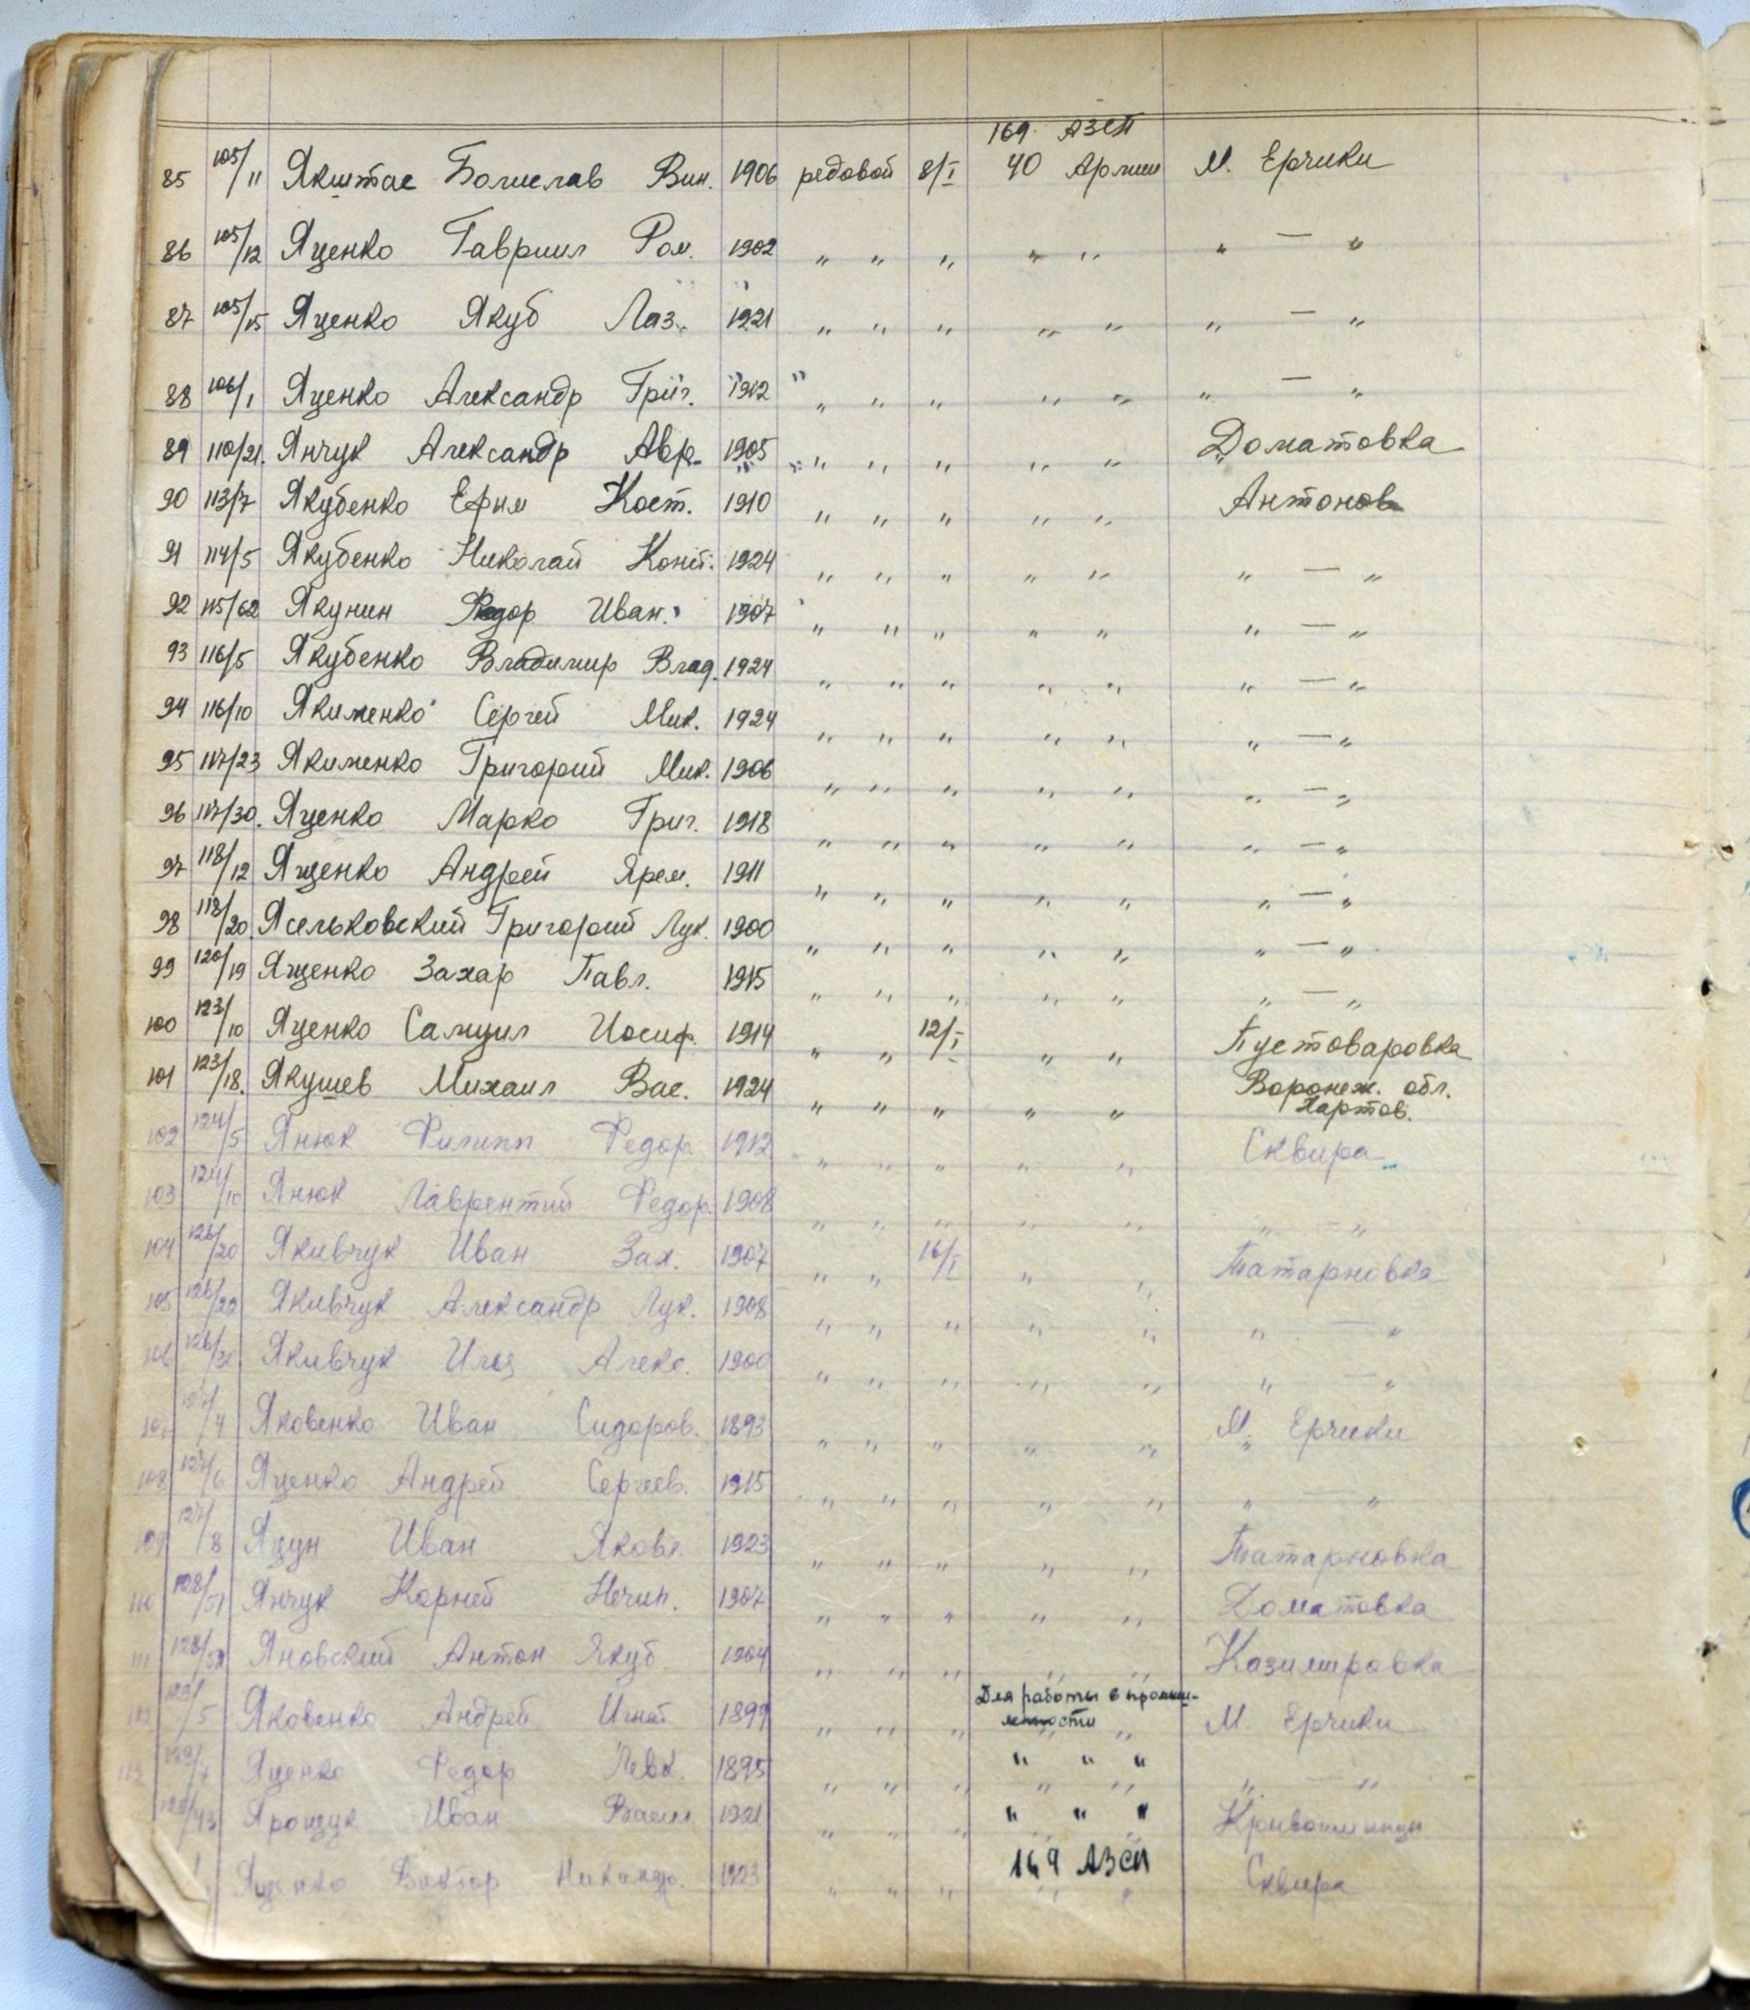 169 АЗСП
85 105/11 Якштас Болислав Вин. 1906 редовой 8/I 40 Армии М. Ерчики
86 105/12 Яценко Гавриил Ром. 1902 " " " " " " — "
87 105/15 Яценко Якуб Лаз. 1921 " " " " " " — "
88 106/1 Яценко Александр Григ. 1912 " " " " " " — "
89 110/21. Янчук Александр Авр. 1905 " " " " " Доматовка
90 113/7 Якубенко Ефим Кост. 1910 " " " " " Антонов
91 114/5 Якубенко Николай Конст. 1924 " " " " " " — "
92 115/62 Якунин Федор Иван. 1907 " " " " " " — "
93 116/5 Якубенко Владимир Влад. 1924 " " " " " " — "
94 116/10 Якименко Сергей Мик. 1924 " " " " " " — "
95 117/23 Якименко Григорий Мик. 1906 " " " " " " — "
96 117/30. Яценко Марко Григ. 1918 " " " " " " — "
97 118/12 Ященко Андрей Ярем. 1911 " " " " " " — "
98 118/20 Ясельковский Григорий Лук. 1900 " " " " " " — "
99 120/19 Ященко Захар Павл. 1915 " " " " " " — "
100 123/10 Яценко Самуил Иосиф. 1914 " " 12/I " " Пустоваровка
101 123/18. Якушев Михаил Вас. 1924 " " " " " Воронеж. обл.
Хартов.
102 124/5 Янюк Филипп Федор. 1912 " " " " " Сквира
103 124/10 Янюк Лаврентий Федор. 1908 " " " " " " — "
104 126/20 Якивчук Иван Зах. 1907 " " 16/I " " Татарновка
105 126/22 Якивчук Александр Лук. 1908 " " " " " " — "
106 Якивчук Илья Алекс. 1900 " " " " " " — "
Яковенко Иван Сидоров. 1893 " " " " " М. Ерчики
108 127/6 Яценко Андрей Сергеев. 1915 " " " " " " — "
109 127/8 Яцун Иван Яковл. 1923 " " " " " Татарновка
110 128/51 Янчук Корней Нечип. 1907 " " " " " Доматовка
111 Яновский Антон Якуб. 1904 " " " " " Казимировка
Для работы в промыш-
112 Яковенко Андрей Игнат 1899 " " " ленности " " М. Ерчики
Яценко Федор Левк. 1895 " " " " " " " — "
Ярощук Иван 1921 " " " " " " Кривошиинцы
Яценко Виктор Никандр. 1923 " " " 169 АЗСП Сквира